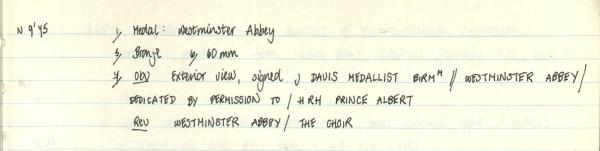 N 9'45 1, Medal: Westminster Abbey
3, Bronze 6, 60 mm
7, Obv Exterior view, signed J DAVIS MEDALLIST BIRMᴹ // WESTMINSTER ABBEY /
DEDICATED BY PERMISSION TO / HRH PRINCE ALBERT
Rev WESTMINSTER ABBEY / THE CHOIR